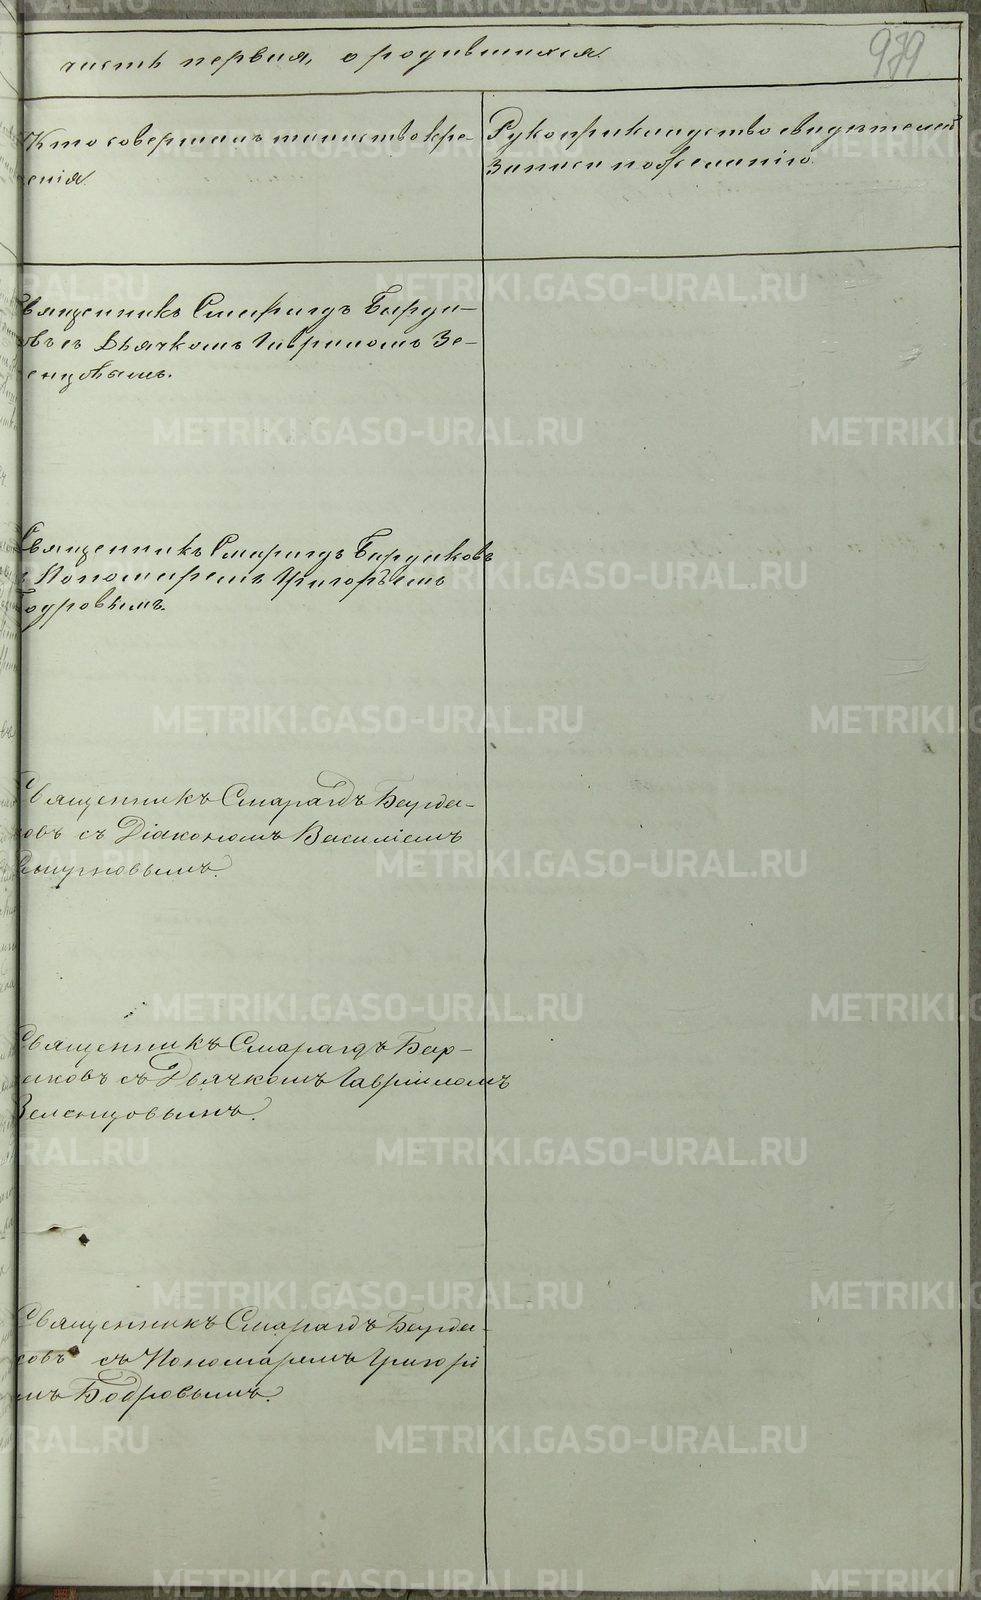 часть первая, о родившихся.
979
Кто совершалъ таинство кре-
щенія.
Рукоприкладство свидѣтелей
записи по желанію.
Священникъ Смарагдъ Бурда-
ковъ съ Дьячкомъ Гавриломъ Зе-
ленцовымъ.
Священникъ Смарагдъ Бурдаковъ
съ Пономаремъ Григорьемъ
Бодровымъ.
Священникъ Смарагдъ Бурда-
ковъ съ Діакономъ Василіемъ
Священникъ Смарагдъ Бур-
даковъ съ Дьячкомъ Гавріиломъ
Зеленцовымъ.
Священникъ Смарагдъ Бурда-
ковъ съ Пономаремъ Григорі
мъ Бодровымъ.
METRIKI.GASO-URAL.RU